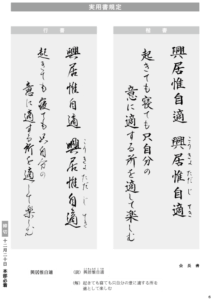 実用書規定
楷書
興居惟自適 興居惟自適
こうきょただじてき
起きても寝ても只自分の
意に適する所を適して楽しむ
行書
興居惟自適 興居惟自適
こうきょただじてき
起きても寝ても只自分の
意に適する所を適して楽しむ
十二月二十日 本部必着
興居惟自適
興居惟自適
起きても寝ても只自分の意に適する所を
適して楽しむ